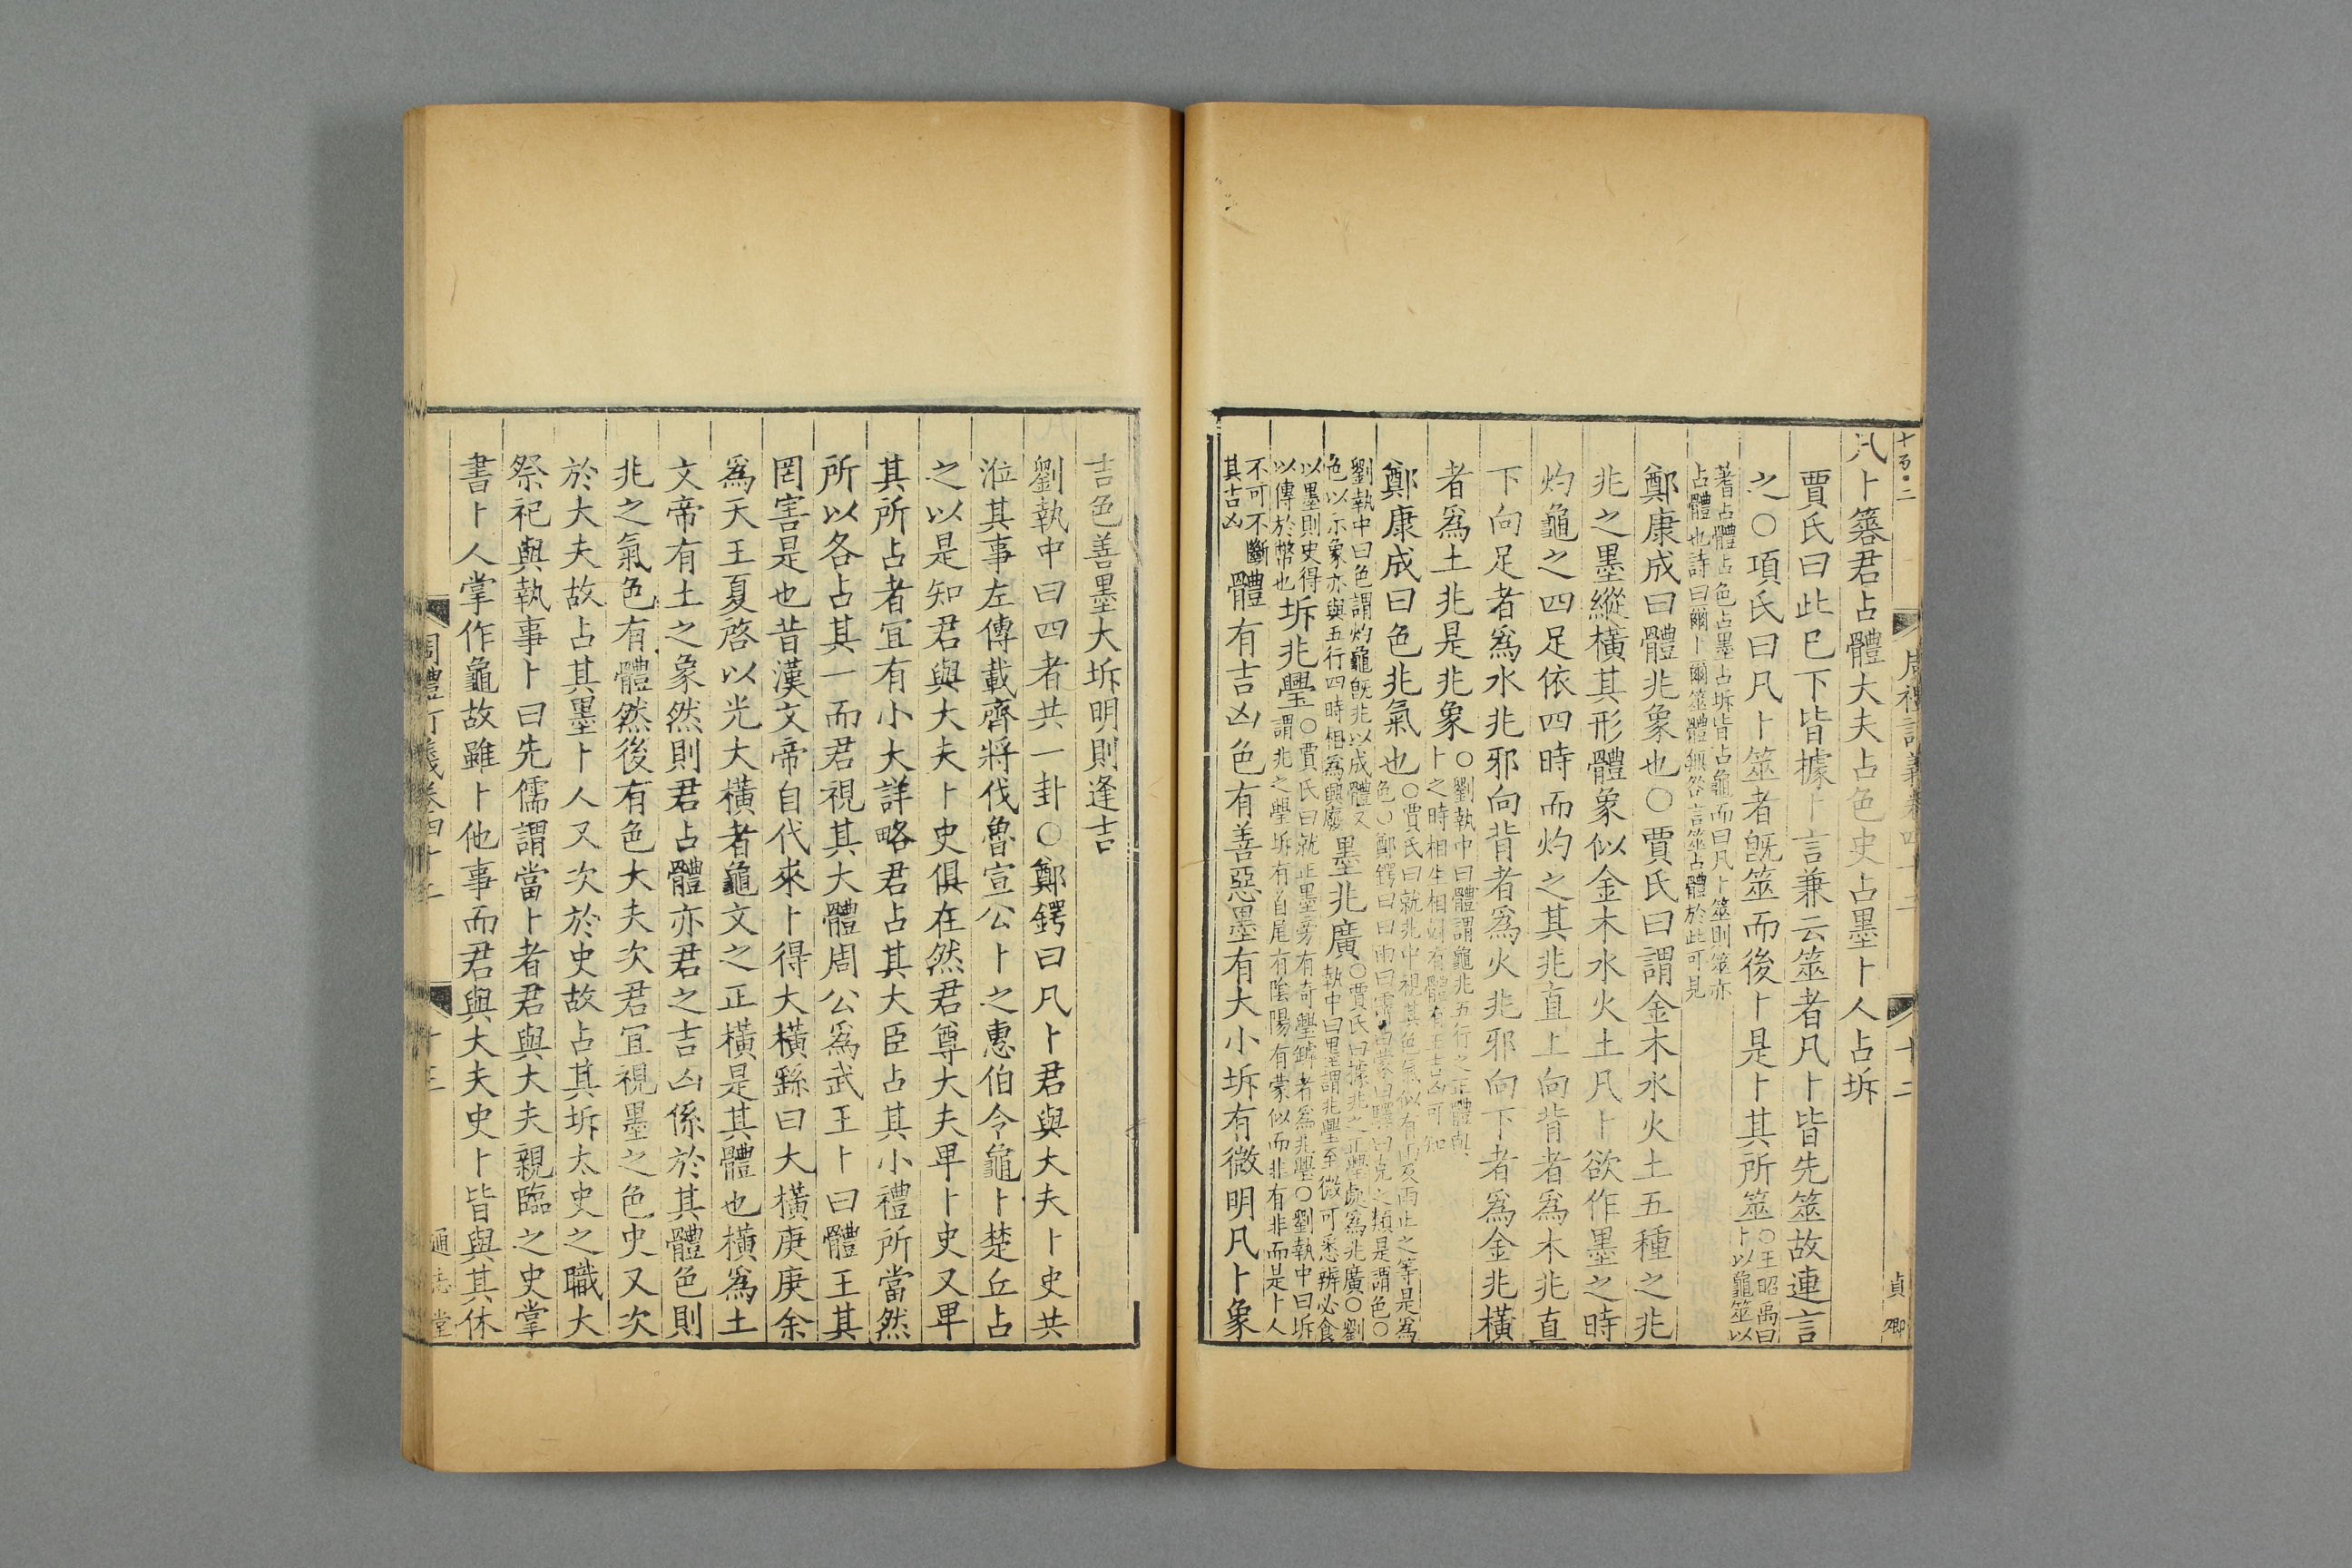 凡卜簭君占體大夫占色史占墨卜人占坼
賈氏曰此已下皆據卜言兼云筮者凡卜皆先筮故連言
之○項氏曰凡卜筮者旣筮而後卜是卜其所筮○王昭禹曰卜以龜筮以
蓍占體占色占墨占坼皆占龜而曰凡卜筮則筮亦
占體也詩曰爾卜爾筮體無咎言筮占體於此可見
鄭康成曰體兆象也○賈氏曰謂金木水火土五種之兆
兆之墨縱橫其形體象似金木水火土凡卜欲作墨之時
灼龜之四足依四時而灼之其兆直上向背者爲木兆直
下向足者爲水兆邪向背者爲火兆邪向下者爲金兆橫
者爲土兆是兆象○劉執中曰體謂龜兆五行之正體與卜之時相生相剋有體有王吉凶可知
鄭康成曰色兆氣也○賈氏曰就兆中視其色氣似有雨及雨止之等是爲色○鄭鍔曰曰雨曰霽曰蒙曰驛曰克之類是謂色○
劉執中曰色謂灼龜旣兆以成體又
色以示象亦與五行四時相爲興廢墨兆廣○賈氏曰據兆之正舋處爲兆廣○劉執中曰墨謂兆舋至微可悉辨必食
以墨則史得
以傳於幣也坼兆舋○賈氏曰就正墨旁有奇舋罅者爲兆舋○劉執中曰坼謂兆之舋坼有首尾有陰陽有蒙似而非有非而是卜人
不可不斷
其吉凶體有吉凶色有善惡墨有大小坼有微明凡卜象
吉色善墨大坼明則逢吉
劉執中曰四者共一卦○鄭鍔曰凡卜君與大夫卜史共
涖其事左傳載齊將伐魯宣公卜之惠伯令龜卜楚丘占
之以是知君與大夫卜史俱在然君尊大夫卑卜史又卑
其所占者宜有小大詳略君占其大臣占其小禮所當然
所以各占其一而君視其大體周公爲武王卜曰體王其
罔害是也昔漢文帝自代來卜得大橫繇曰大橫庚庚余
爲天王夏啓以光大橫者龜文之正橫是其體也橫爲土
文帝有土之象然則君占體亦君之吉凶係於其體色則
兆之氣色有體然後有色大夫次君宜視墨之色史又次
於大夫故占其墨卜人又次於史故占其坼太史之職大
祭祀與執事卜曰先儒謂當卜者君與大夫親臨之史掌
書卜人掌作龜故雖卜他事而君與大夫史卜皆與其休
周禮訂義卷四十二
十二
貞
卿
十三
通志堂